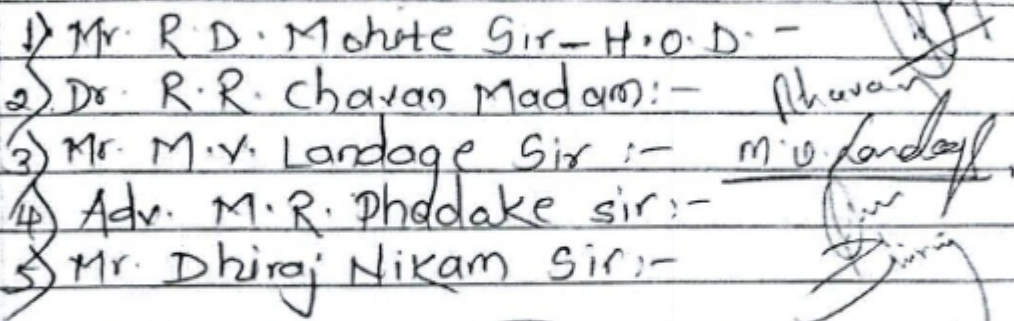 1) Mr. R.D. Mohite Sir - H.O.D. -
2) Dr. R.R. Chavan Madam:- Rhavan
3) Mr. M.V. Landage Sir :- M.V. Landage
4) Adv. M.R. Phadake sir:-
5) Mr. Dhiraj Nikam Sir:-